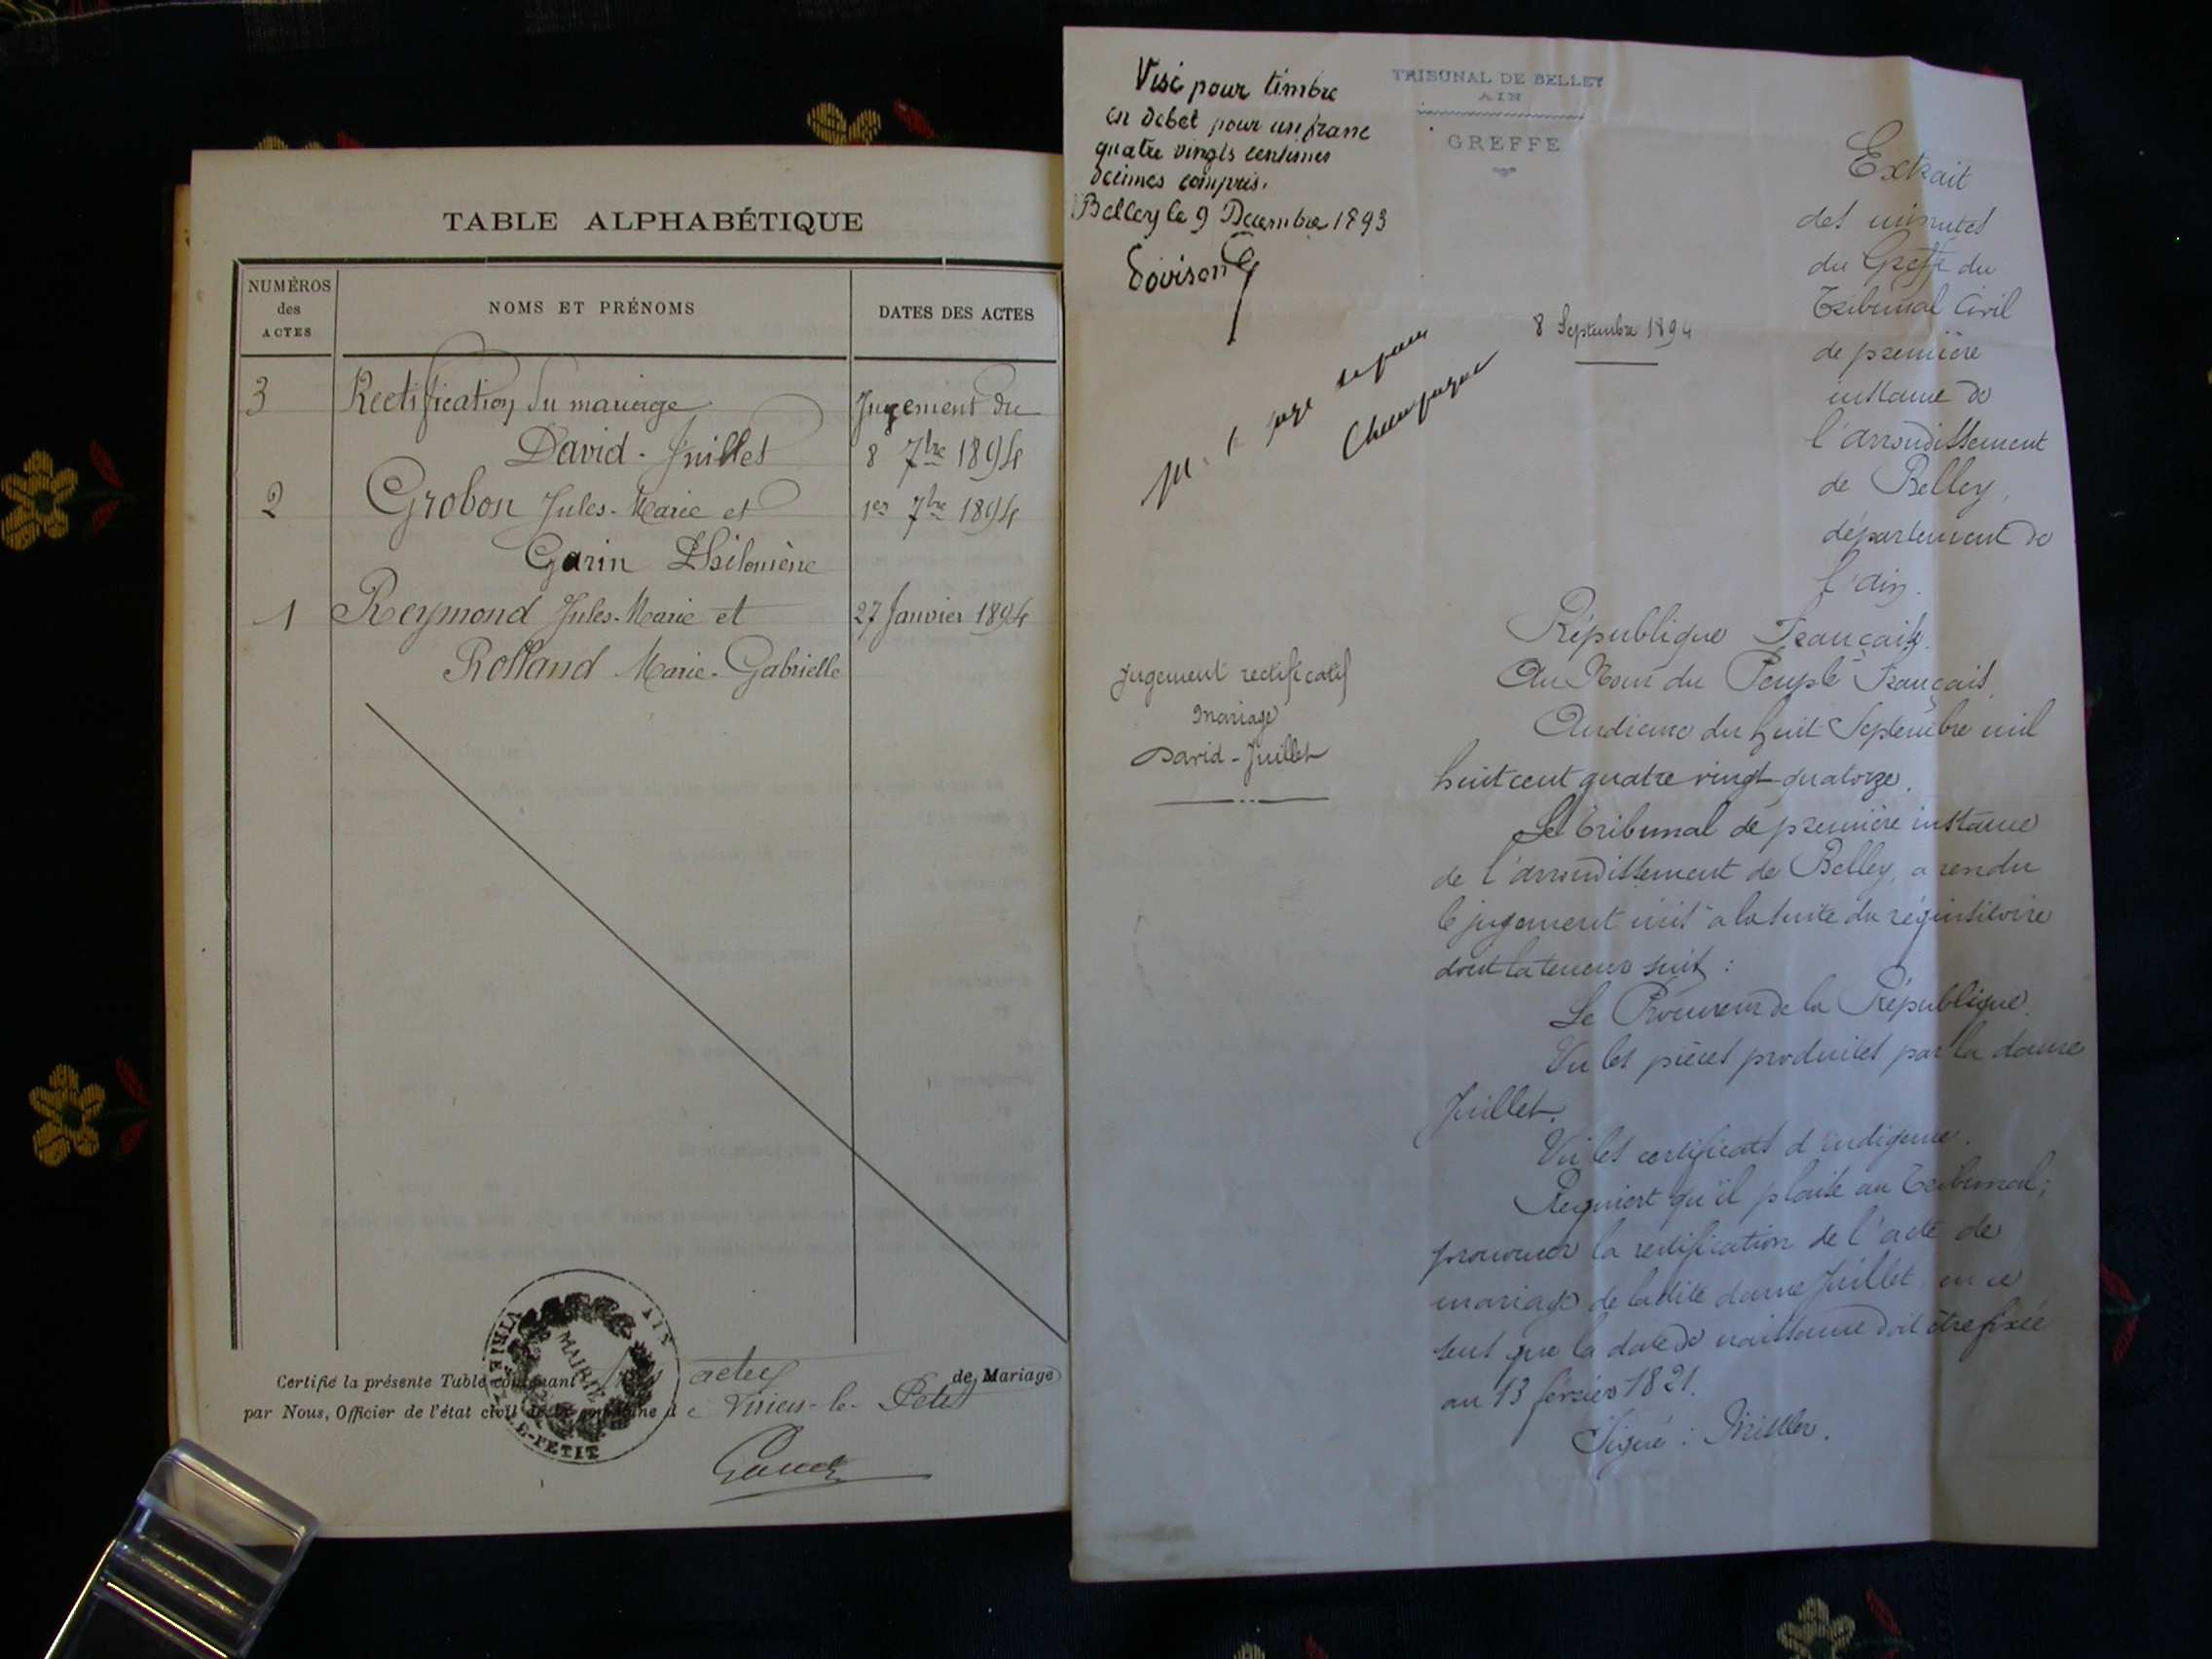 TABLE ALPHABÉTIQUE
NUMÉROS
des
ACTES
NOMS ET PRÉNOMS
DATES DES ACTES
3 Rectification du mariage Jugement du
David - Juillet 8 7bre 1894
2 Grobon Jules-Marie et 1er 7bre 1894
Garin Philomène
1 Reymond Jules-Marie et 27 Janvier 1894
Rolland Marie-Gabrielle
Certifié la présente Table contenant actes de Mariage
par Nous, Officier de l'état civil de la commune de Virieu-le-Petit
MAIRIE
VIRIEU-LE-PETIT
AIN
Visé pour timbre
en debet pour un franc
quatre vingts centimes
décimes compris.
Belley le 9 Décembre 1893
TRIBUNAL DE BELLEY
AIN
GREFFE
8 Septembre 1894
M. le juge de paix
Champagne
Extrait
des minutes
du Greffe du
Tribunal Civil
de première
instance de
l'arrondissement
de Belley,
département de
l'Ain.
Jugement rectificatif
mariage
David - Juillet
République Française.
Au Nom du Peuple Français,
Audience du huit Septembre mil
huit cent quatre vingt quatorze.
Le Tribunal de première instance
de l'arrondissement de Belley, a rendu
le jugement mis à la suite du réquisitoire
dont la teneur suit :
Le Procureur de la République.
Vu les pièces produites par la dame
Juillet.
Vu les certificats d'indigence.
Requiert qu'il plaise au Tribunal;
prononcer la rectification de l'acte de
mariage de ladite dame Juillet en ce
sens que la date de naissance doit être fixée
au 13 février 1821.
Signé :